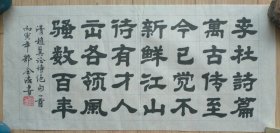 李杜詩篇
萬古传至
今已覺不
新鮮江山
待有才人
出各领風
骚數百年
清趙翼論诗绝句一首
丙寅年書